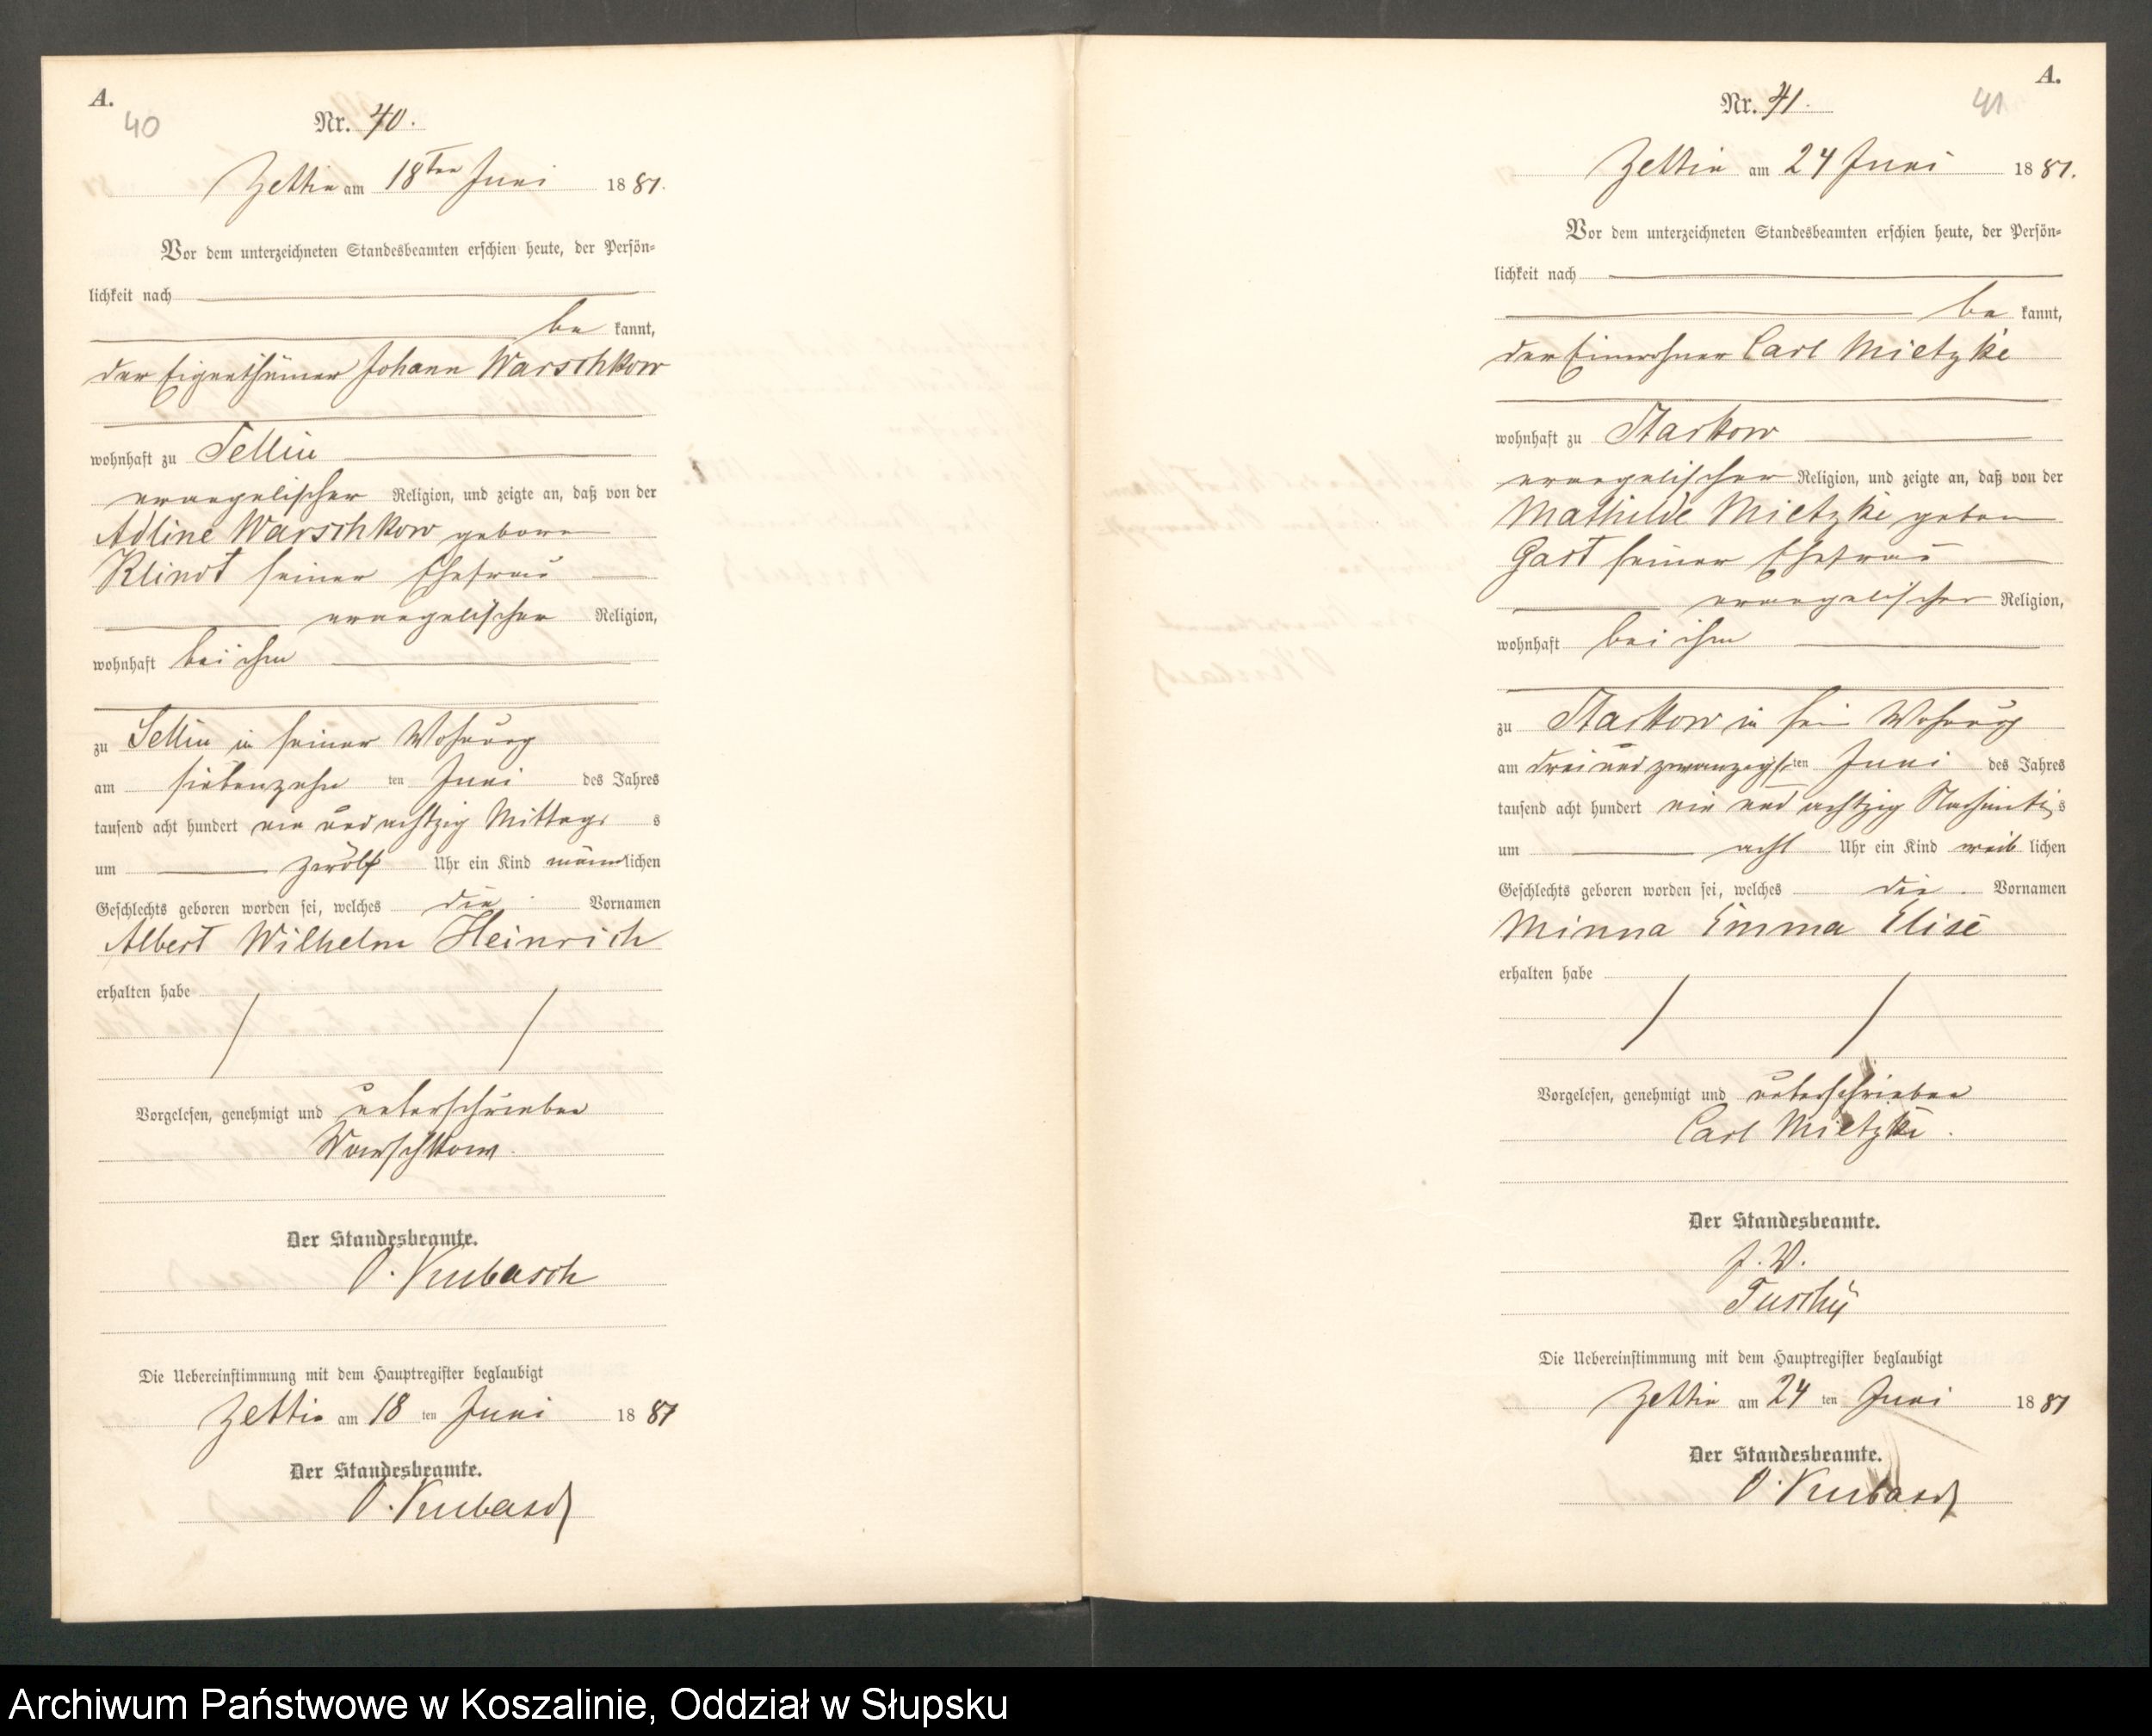 A.
40
Nr. 40.
Zettin am 18ten Juni 1881.
Vor dem unterzeichneten Standesbeamten erschien heute, der Persön-
lichkeit nach
be kannt,
der Eigenthümer Johann Warschkow
wohnhaft zu Sellin
evangelischer Religion, und zeigte an, daß von der
Adline Warschkow geboren
Klindt seiner Ehefrau
evangelischer Religion,
wohnhaft bei ihm
zu Sellin in seiner Wohnung
am siebenzehn ten Juni des Jahres
tausend acht hundert ein und achtzig Mittags s
um zwölf Uhr ein Kind männlichen
Geschlechts geboren worden sei, welches die Vornamen
Albert Wilhelm Heinrich
erhalten habe
Vorgelesen, genehmigt und unterschrieben
Warschkow.
Der Standesbeamte.
O. Kubasch
Die Uebereinstimmung mit dem Hauptregister beglaubigt
Zettin am 18 ten Juni 1881
Der Standesbeamte.
O. Kubasch
A.
41
Nr. 41.
Zettin am 24 Juni 1881.
Vor dem unterzeichneten Standesbeamten erschien heute, der Persön-
lichkeit nach
be kannt,
der Einwohner Carl Mietzke
wohnhaft zu Starkow
evangelischer Religion, und zeigte an, daß von der
Mathilde Mietzke geboren
Gast seiner Ehefrau
evangelischer Religion,
wohnhaft bei ihm
zu Starkow in sein Wohnung
am drei und zwanzigsten Juni des Jahres
tausend acht hundert ein und achtzig s
um acht Uhr ein Kind weib lichen
Geschlechts geboren worden sei, welches die Vornamen
Minna Emma Elise
erhalten habe
Vorgelesen, genehmigt und unterschrieben
Carl Mietzke.
Der Standesbeamte.
J. V.
Die Uebereinstimmung mit dem Hauptregister beglaubigt
Zettin am 24 ten Juni 1881
Der Standesbeamte.
O. Kubasch
Archiwum Państwowe w Koszalinie, Oddział w Słupsku